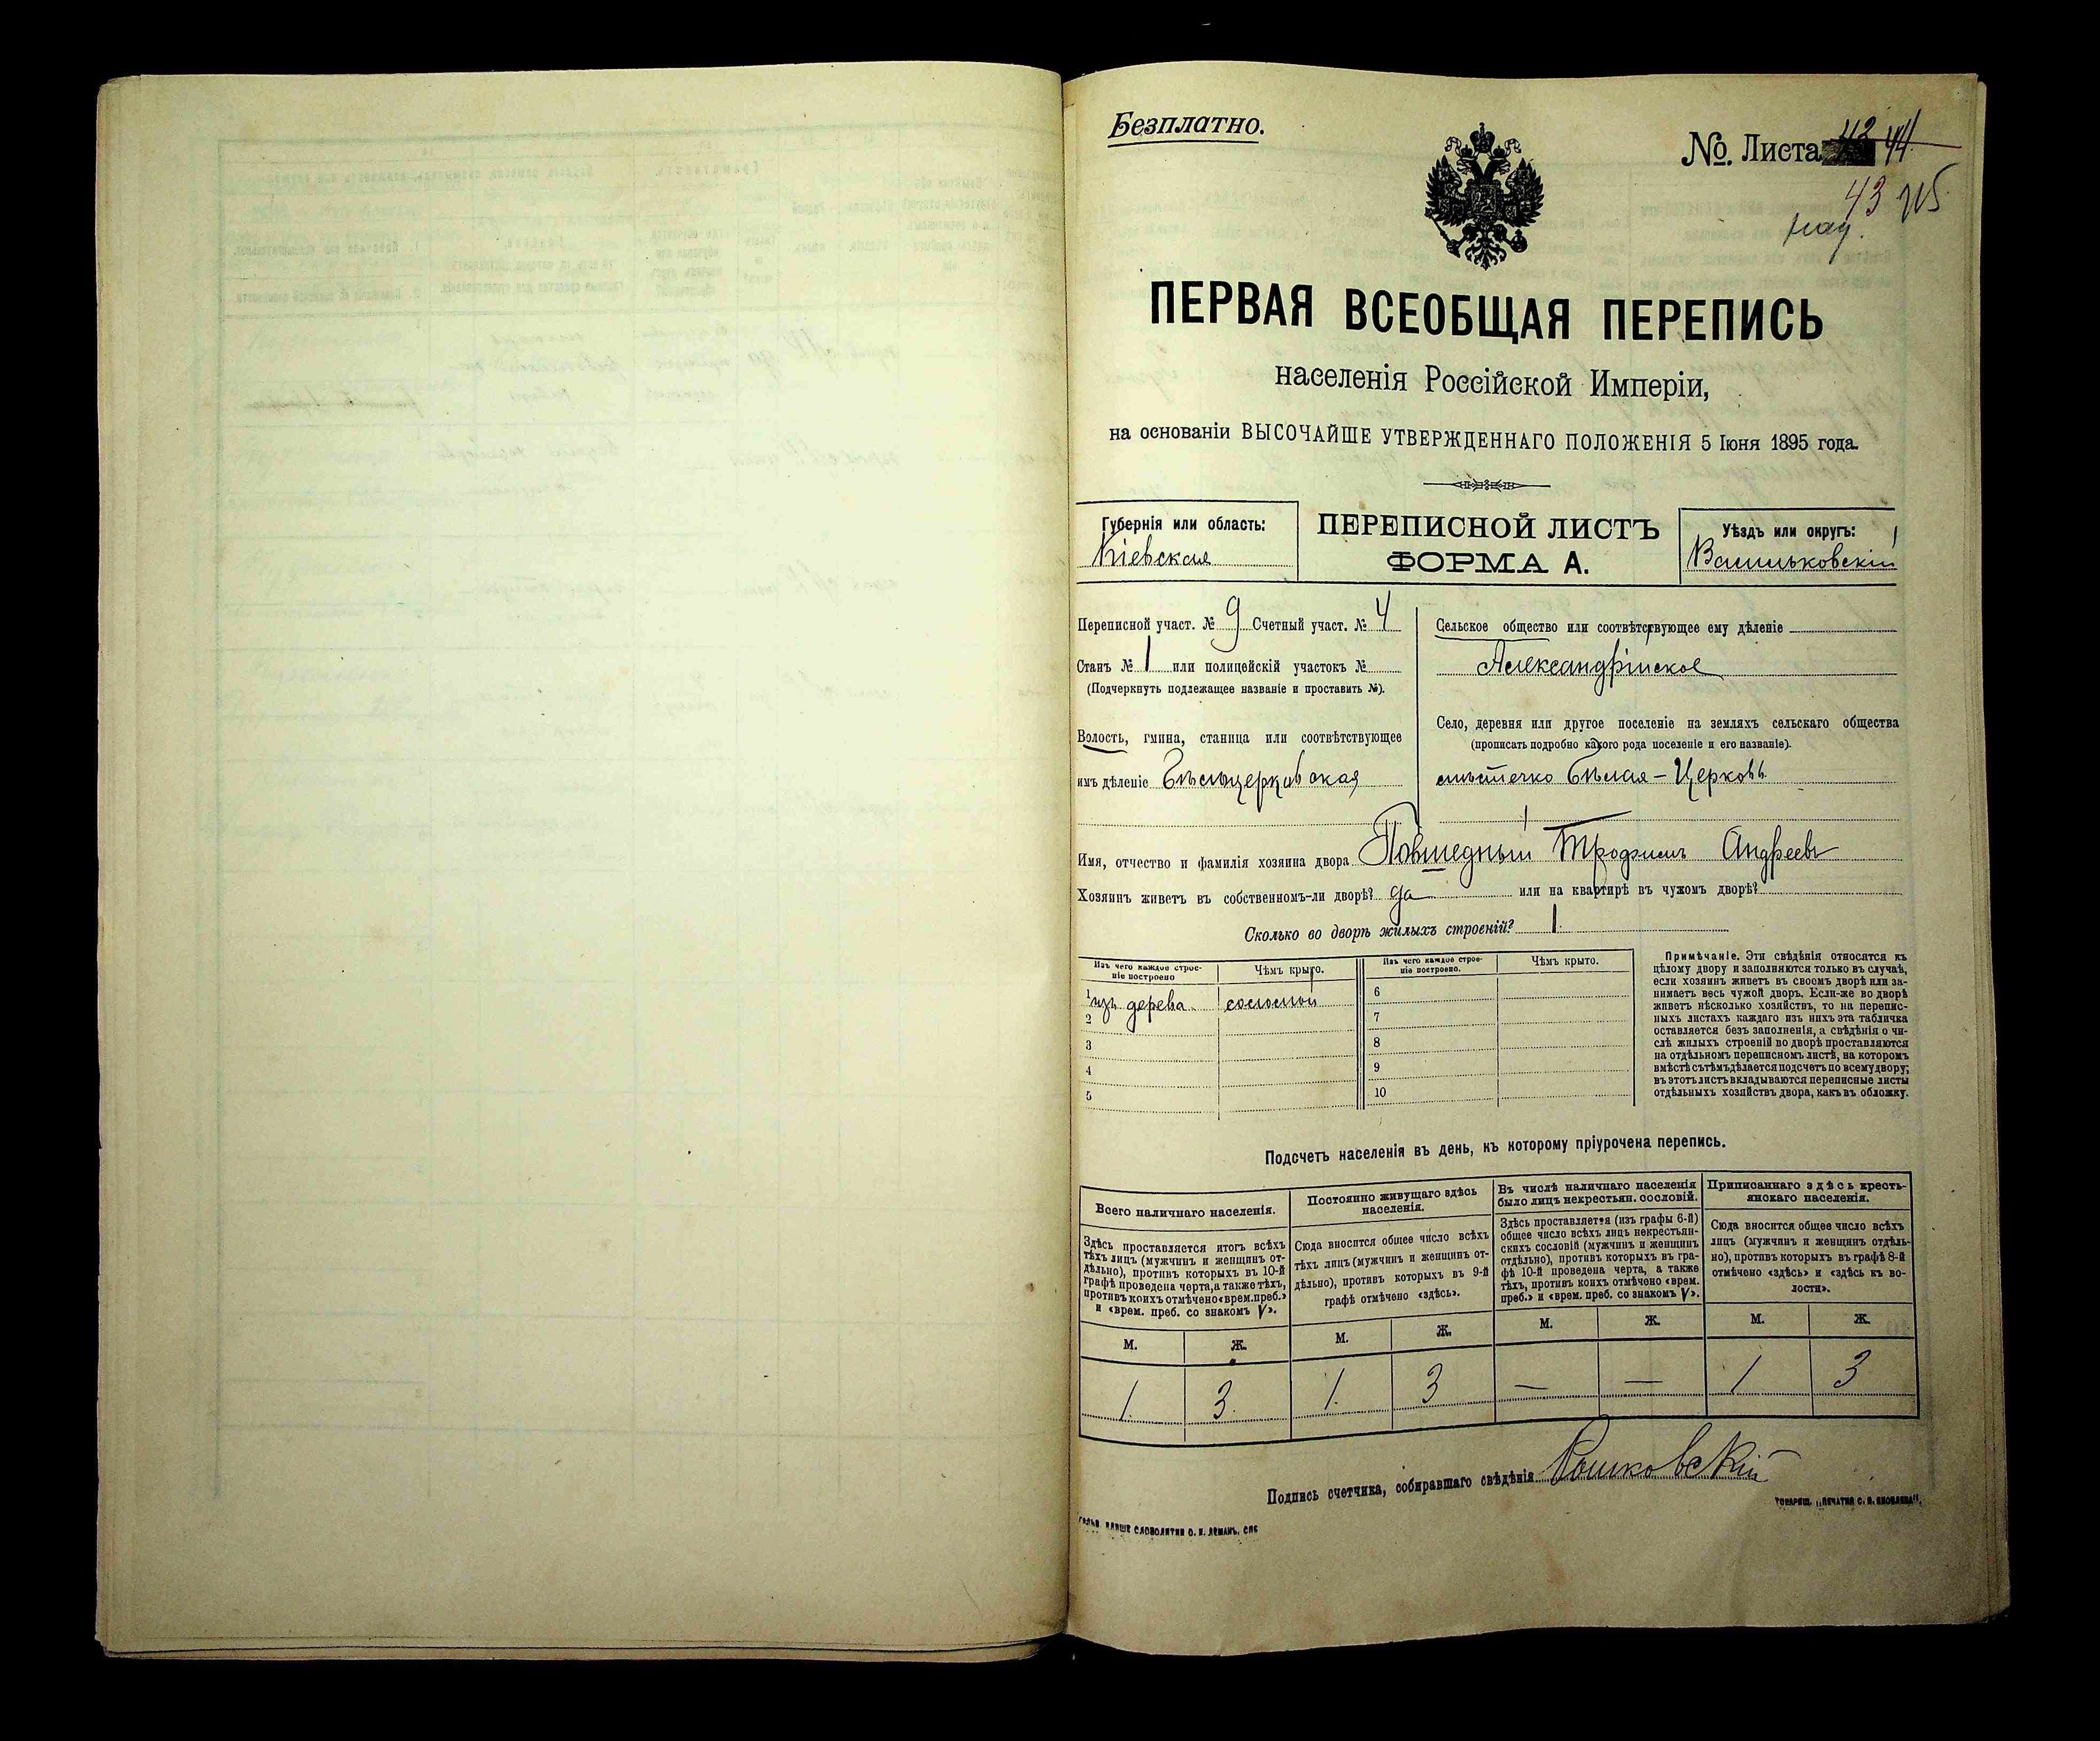 Безплатно.
№ Листа 44.
43
ПЕРВАЯ ВСЕОБЩАЯ ПЕРЕПИСЬ
населенія Россійской Имперіи,
на основаніи ВЫСОЧАЙШЕ УТВЕРЖДЕННАГО ПОЛОЖЕНІЯ 5 Іюня 1895 года.
Губернія или область:
Кіевская
ПЕРЕПИСНОЙ ЛИСТЪ
ФОРМА А.
Уѣздъ или округъ:
Васильковскій
Переписной участ. № 9 Счетный участ. № 4
Станъ № 1 или полицейскій участокъ №
(Подчеркнуть подлежащее названіе и проставить №).
Волость, гмина, станица или соотвѣтствующее
имъ дѣленіе Бѣлоцерковская
Сельское общество или соотвѣтствующее ему дѣленіе
Александрійское
Село, деревня или другое поселеніе на земляхъ сельскаго общества
(прописать подробно какого рода поселеніе и его названіе).
мѣстечко Бѣлая-Церковь
Имя, отчество и фамилія хозяина двора Повшедный Трофимъ Андреевъ
Хозяинъ живетъ въ собственномъ-ли дворѣ? да или на квартирѣ въ чужомъ дворѣ?
Сколько во дворѣ жилыхъ строеній? 1.
Изъ чего каждое строе-
ніе построено
Чѣмъ крыто.
1 изъ дерева соломой
2
3
4
5
Изъ чего каждое строе-
ніе построено.
Чѣмъ крыто.
6
7
8
9
10
Примѣчаніе. Эти свѣдѣнія относятся къ
цѣлому двору и заполняются только въ случаѣ,
если хозяинъ живетъ въ своемъ дворѣ или за-
нимаетъ весь чужой дворъ. Если-же во дворѣ
живетъ нѣсколько хозяйствъ, то на перепис-
ныхъ листахъ каждаго изъ нихъ эта табличка
оставляется безъ заполненія, а свѣдѣнія о чи-
слѣ жилыхъ строеній во дворѣ проставляются
на отдѣльномъ переписномъ листѣ, на которомъ
вмѣстѣ съ тѣмъ дѣлается подсчетъ по всему двору;
въ этотъ листъ вкладываются переписные листы
отдѣльныхъ хозяйствъ двора, какъ въ обложку.
Подсчетъ населенія въ день, къ которому пріурочена перепись.
Всего наличнаго населенія.
Здѣсь проставляется итогъ всѣхъ
тѣхъ лицъ (мужчинъ и женщинъ от-
дѣльно), противъ которыхъ въ 10-й
графѣ проведена черта, а также тѣхъ,
противъ коихъ отмѣчено «врем. преб.»
и «врем. преб. со знакомъ V».
М. Ж.
1. 3.
Постоянно живущаго здѣсь
населенія.
Сюда вносится общее число всѣхъ
тѣхъ лицъ (мужчинъ и женщинъ от-
дѣльно), противъ которыхъ въ 9-й
графѣ отмѣчено «здѣсь».
М. Ж.
1. 3
Въ числѣ наличнаго населенія
было лицъ некрестьян. сословій.
Здѣсь проставляется (изъ графы 6-й)
общее число всѣхъ лицъ некрестьян-
скихъ сословій (мужчинъ и женщинъ
отдѣльно), противъ которыхъ въ гра-
фѣ 10-й проведена черта, а также
тѣхъ, противъ коихъ отмѣчено «врем.
преб.» и «врем. преб. со знакомъ V».
М. Ж.
— —
Приписаннаго здѣсь кресть-
янскаго населенія.
Сюда вносится общее число всѣхъ
лицъ (мужчинъ и женщинъ отдѣль-
но), противъ которыхъ въ графѣ 8-й
отмѣчено «здѣсь» и «здѣсь къ во-
лости».
М. Ж.
1 3
Подпись счетчика, собиравшаго свѣдѣнія
СЛОВОЛИТНИ О. И. ЛЕМАНЪ, СПБ
ТОВАРИЩ. „ПЕЧАТНЯ С. П. ЯКОВЛЕВА".